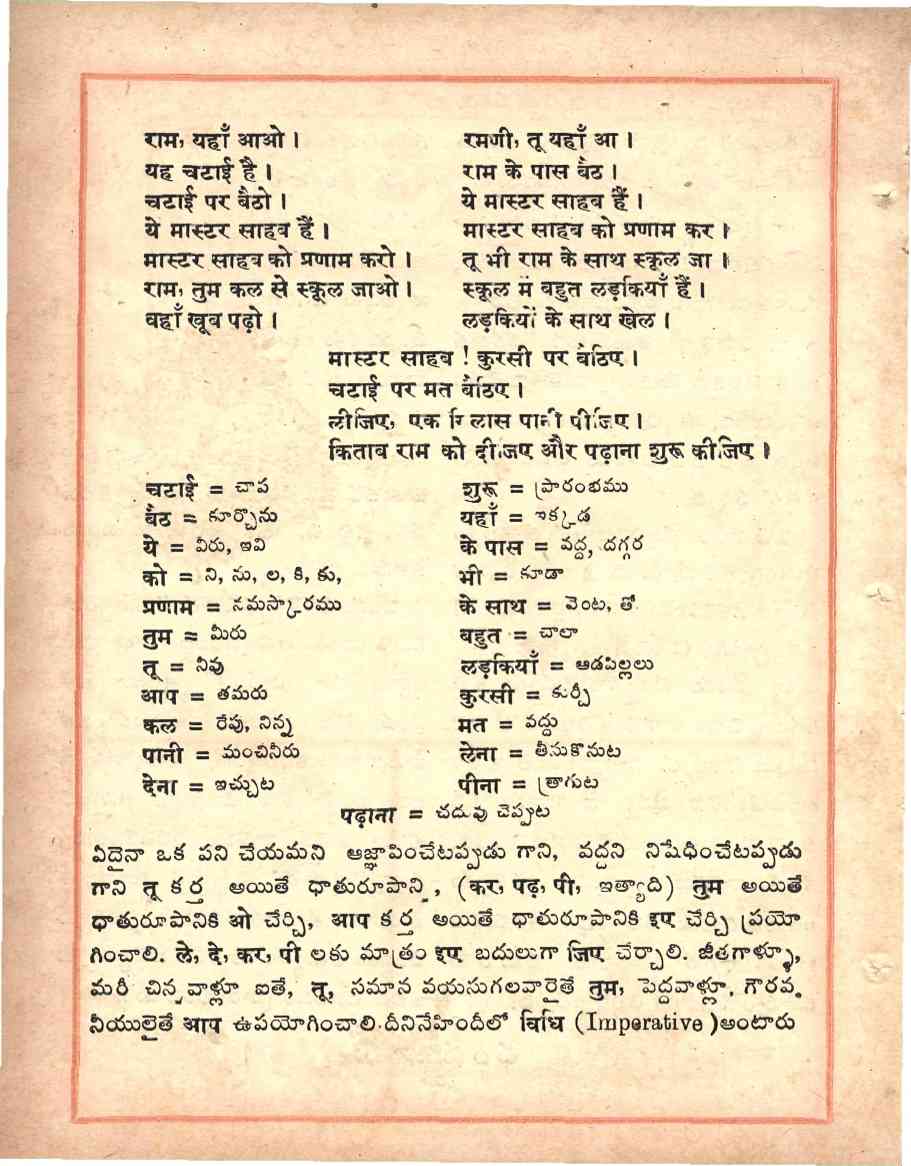 राम, यहाँ आओ ।
यह चटाई है ।
चटाई पर बैठो ।
ये मास्टर साहब हैं ।
मास्टर साहब को प्रणाम करो ।
राम, तुम कल से स्कूल जाओ ।
वहाँ खूब पढ़ो ।
रमणी, तू यहाँ आ ।
राम के पास बैठ ।
ये मास्टर साहब हैं ।
मास्टर साहब को प्रणाम कर ।
तू भी राम के साथ स्कूल जा ।
स्कूल में बहुत लड़कियाँ हैं ।
लड़कियों के साथ खेल ।
मास्टर साहब ! कुरसी पर बैठिए ।
चटाई पर मत बैठिए ।
लीजिए, एक गिलास पानी पीजिए ।
किताब राम को दीजिए और पढ़ाना शुरू कीजिए ।
चटाई = చాప
बैठ = కూర్చొను
ये = వీరు, ఇవి
को = ని, ను, ల, కి, కు,
प्रणाम = నమస్కారము
तुम = మీరు
तू = నీవు
आप = తమరు
कल = రేపు, నిన్న
पानी = మంచినీరు
देना = ఇచ్చుట
शुरू = ప్రారంభము
यहाँ = ఇక్కడ
के पास = వద్ద, దగ్గర
भी = కూడా
के साथ = వెంట, తో
बहुत = చాలా
लड़कियाँ = ఆడపిల్లలు
कुरसी = కుర్చీ
मत = వద్దు
लेना = తీసుకొనుట
पीना = త్రాగుట
पढ़ाना = చదువు చెప్పుట
ఏదైనా ఒక పని చేయమని ఆజ్ఞాపించేటప్పుడు గాని, వద్దని నిషేధించేటప్పుడు
గాని तू కర్త అయితే ధాతురూపాన్ని, (कर, पढ़, पी, ఇత్యాది) तुम అయితే
ధాతురూపానికి ओ చేర్చి, आप కర్త అయితే ధాతురూపానికి इए చేర్చి ప్రయో
గించాలి. ले, दे, कर, पी లకు మాత్రం इए బదులుగా जिए చేర్చాలి. జీతగాళ్ళూ,
మరీ చిన్నవాళ్లూ ఐతే, तू, సమాన వయసుగలవారైతే तुम, పెద్దవాళ్లూ, గౌరవ
నీయులైతే आप ఉపయోగించాలి. దీనినేహిందీలో विधि (Imperative ) అంటారు